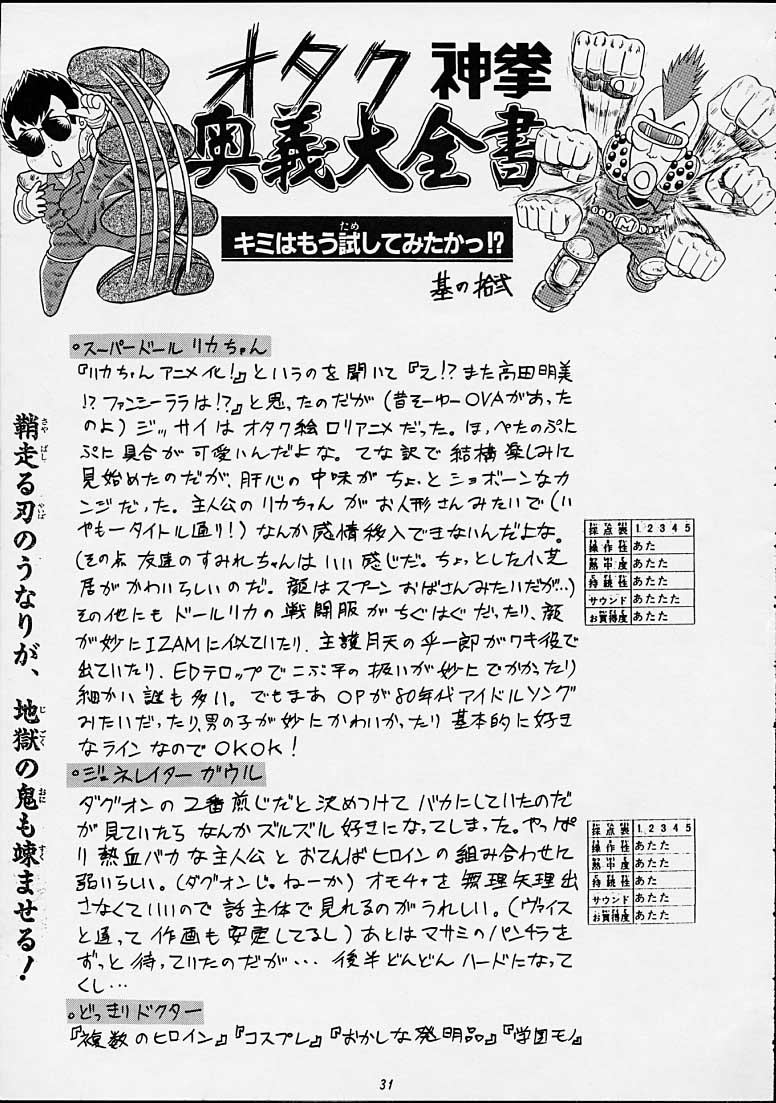 オタク 神拳
奥義大全書
キミはもう試してみたかっ!?
基の拾弐
鞘走る刃のうなりが、地獄の鬼も竦ませる!
。スーパードール リカちゃん
『リカちゃんアニメ化!』というのを聞いて『え!?また高田明美
!?ファンシーララは!?』と思ったのだが(昔そーゆーOVAがあった
のよ)ジッサイはオタク絵ロリアニメだった。ほっぺたのぷに
ぷに具合が可愛いんだよな。てな訳で結構楽しみに
見始めたのだが、肝心の中味がちょっとショボーンなカ
ンジだった。主人公のリカちゃんがお人形さんみたいで(い
やもータイトル通り!)なんか感情移入できないんだよな。
(その点友達のすみれちゃんはいい感じだ。ちょっとした小芝
居がかわいらしいのだ。顔はスプーンおばさんみたいだが…)
その他にもドールリカの戦闘服がちぐはぐだったり、顔
が妙にIZAMに似ていたり、主護月天の伞一郎がワキ役で
出ていたり、EDテロップでこぶ平の扱いが妙にでかかったり
細かい謎も多い。でもまあOPが80年代アイドルソング
みたいだったり、男の子が妙にかわいかったり基本的に好き
なラインなのでOKOK!
採点表 1 2 3 4 5
操作性 あた
熱中度 あたた
持続性 あた
サウンド あたたた
お買得度 あたた
。ジェネレイターガウル
ダグオンの2番煎じだと決めつけてバカにしていたのだ
が見ていたらなんかズルズル好きになってしまった。やっぱ
り熱血バカな主人公とおてんばヒロインの組み合わせに
弱いらしい。(ダグオンじゃねーか)オモチャを無理矢理出
さなくていいので話主体で見れるのがうれしい。(ヴァイス
と違って作画も安定してるし)あとはマサミのパンチラを
ずっと待っていたのだが…後半どんどんハードになって
くし…
採点表 1 2 3 4 5
操作性 あたた
熱中度 あたた
持続性 あた
サウンド あたた
お買得度 あたた
。どっきりドクター
『複数のヒロイン』『コスプレ』『おかしな発明品』『学園モノ』
31